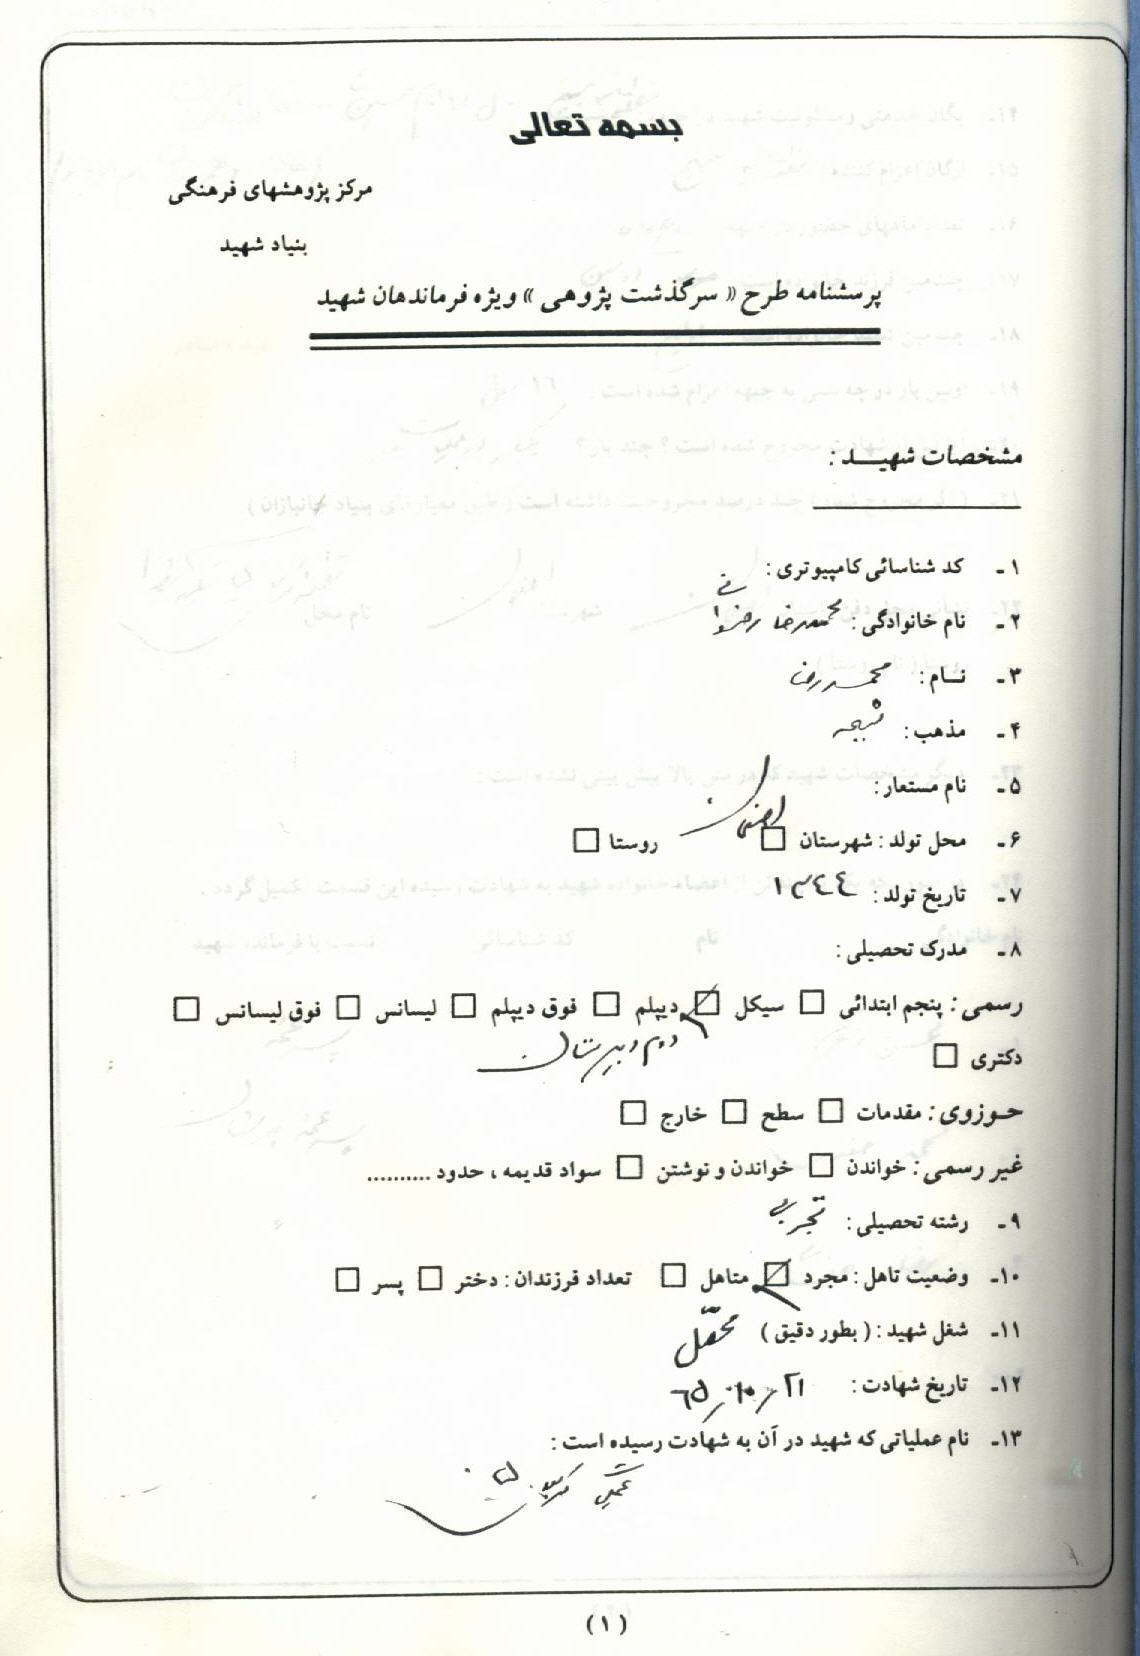 بسمه تعالی
مرکز پژوهشهای فرهنگی
بنیاد شهید
پرسشنامه طرح « سرگذشت پژوهی » ویژه فرماندهان شهید
مشخصات شهیـــد :
۱ـ کد شناسائی کامپیوتری :
۲ـ نام خانوادگی : محمدرضا رضوانی
۳ـ نــام : محمدرضا
۴ـ مذهب : شیعه
۵ـ نام مستعار :
۶ـ محل تولد : شهرستان □ اصفهان روستا □
۷ـ تاریخ تولد : ۱۳۴۴
۸ـ مدرک تحصیلی :
رسمی : پنجم ابتدائی □ سیکل ☑ دیپلم □ فوق دیپلم □ لیسانس □ فوق لیسانس □
دوم دبیرستان
دکتری □
حـوزوی : مقدمات □ سطح □ خارج □
غیر رسمی : خواندن □ خواندن و نوشتن □ سواد قدیمه ، حدود ..........
۹ـ رشته تحصیلی : تجربی
۱۰ـ وضعیت تاهل : مجرد ☑ متاهل □ تعداد فرزندان : دختر □ پسر □
۱۱ـ شغل شهید : ( بطور دقیق ) محصل
۱۲ـ تاریخ شهادت : ۲۱ / ۱۰ / ۶۵
۱۳ـ نام عملیاتی که شهید در آن به شهادت رسیده است :
عملیات کربلای ۵
( ۱ )